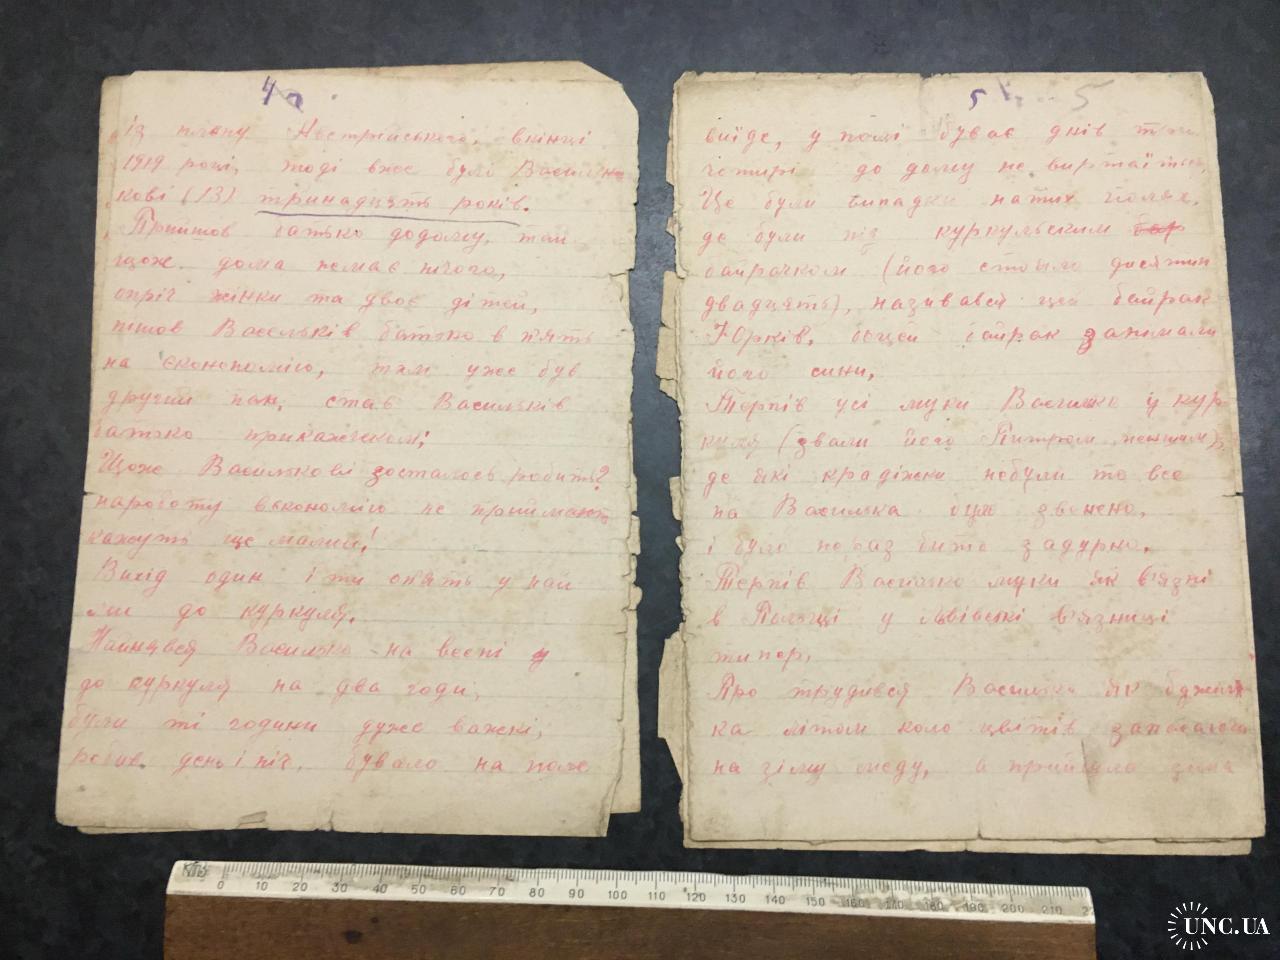 4а
із плєну Австрійського, вкінці
1919 році, тоді вже було Василь
кові (13) тринадцять років.
Прийшов батько додому, там
щож дома немає нічого,
опріч жінки та двоє дітей,
пішов Васильків батько в п'ять
на єкономію, там уже був
другий пан, став Васильків
батько прикажчиком;
Щож Василькові зосталось робить?
нароботу векономію не приймають
кажуть ще малий!
Вихід один іти оп'ять у най
ми до куркуля.
Найнявся Василько на весні у
до куркуля на два годи,
були ті години дуже важкі,
робив день і ніч, бувало на поле
5 5
виїде, у полі буває днів три
чотирі до дому не виртаїться,
Це були випадки натих полях,
де були під куркульским бар
байрачком (його стояло дисятин
двадцять), називався цей байрак
Юрків, оцей байрак занимали
його сини,
Терпів усі муки Василько у кур
куля (звали його Питром меншим),
де які крадіжки небули то все
на Василька оцю звонено,
і було нераз бито задурно.
Терпів Василько муки як в'язні
в Польщі у Львівські в'язниці
типер,
Про трудився Василько як бджіл
ка літом коло цвітів запасаючи
на зіму меду, а прийшла зима
КТЗ 0 10 20 30 40 50 60 70 80 90 100 110 120 130 140 150 160 170 180 190 200 210
UNC.UA